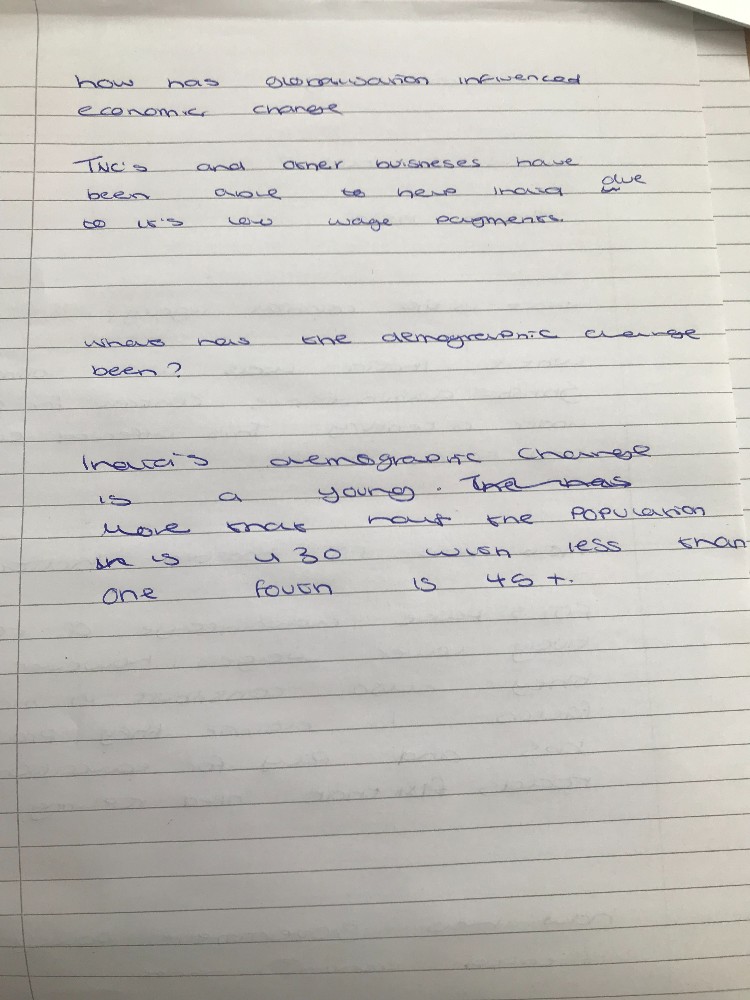 how has globalisation influenced
economic change
TNC's and other buisneses have
been able to help India due
to it's low wage payments.
what has the demographic change
been?
India's demographic change
is a young. The has
More that half the population
is u 30 with less than
one fouth is 45 +.